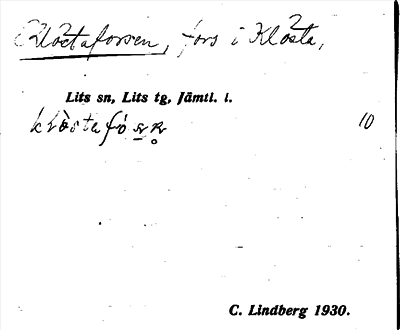 Klöstaforsen, fors i Klösta,
Lits sn, Lits tg, Jämtl. l.
10
C. Lindberg 1930.